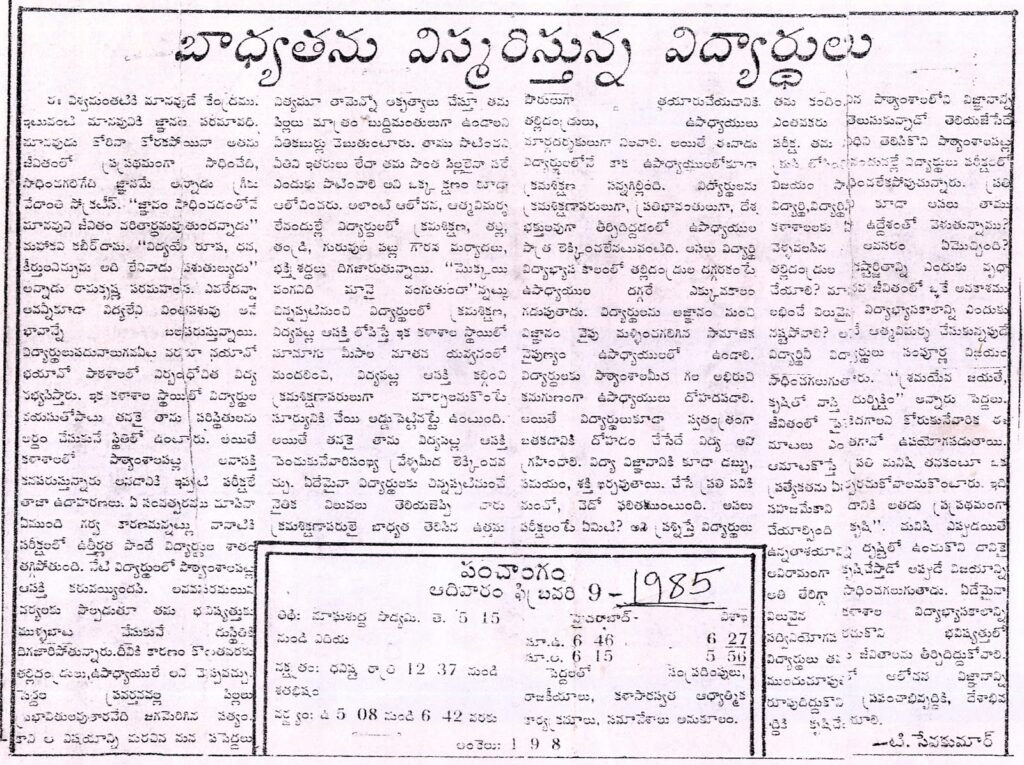 బాధ్యతను విస్మరిస్తున్న విద్యార్థులు
ఈ విశ్వమంతటికి మానవుడే కేంద్రము.
ఇటువంటి మానవునికి జ్ఞానం పరమావధి.
మానవుడు కోరినా కోరకపోయినా అతను
జీవితంలో ప్రప్రథమంగా సాధించేది,
సాధించగలిగేది జ్ఞానమే అన్నాడు గ్రీకు
వేదాంతి సోక్రటీస్. “జ్ఞానం సాధించడంలోనే
మానవుని జీవితం చరితార్థమవుతుందన్నాడు”
మహాకవి కబీర్‌దాసు. “విద్యయే రూపం, ధన,
కీర్తులవిచ్చును అది లేనివాడు పశుతుల్యుడు”
అన్నాడు రామకృష్ణ పరమహంస. ఎవరేదన్నా
అవన్నీకూడా విద్యలేని వింతపశువు అనే
భావాన్నే బలపరుస్తున్నాయి.
విద్యార్థులు
పాఠశాలలో నిర్బంధోచిత విద్య
నభ్యసిస్తారు. ఇక కళాశాల స్థాయిలో విద్యార్థుల
వయసుతోపాటు తనకై తాను పరిస్థితులను
అర్థం చేసుకునే స్థితిలో ఉంటారు. అయితే
కళాశాలలో పాఠ్యాంశాలపట్ల అనాసక్తి
కనపరుస్తున్నారు అనడానికి ఇప్పటి పరీక్షలే
తాజా ఉదాహరణలు. ఏ సంవత్సరము చూసినా
ఏముంది గర్వ కారణమన్నట్లు నానాటికి
పరీక్షలలో ఉత్తీర్ణత పొందే విద్యార్థుల శాతం
తగ్గిపోతుంది. నేటి విద్యార్థులలో పాఠ్యాంశాలపట్ల
ఆసక్తి కరువయ్యిందని. అనవసరమయిన
చర్యలకు పాల్పడుతూ తమ భవిష్యత్తుకు
ముళ్ళబాట వేసుకునే దుస్థితికి
దిగజారిపోతున్నారు.దీనికి కారణం కొంతవరకు
తల్లిదండ్రులు,ఉపాధ్యాయులే అని చెప్పవచ్చు.
పెద్దల ప్రవర్తనవల్ల పిల్లలు
ప్రభావితులవుతారనేది జగమెరిగిన సత్యం.
కాని ఆ విషయాన్ని మరచిన మన పెద్దలు
నిత్యమూ తామెన్నో అకృత్యాలు చేస్తూ తమ
పిల్లలు మాత్రం బుద్ధిమంతులుగా ఉండాలని
నీతికబుర్లు చెబుతుంటారు. తాము పాటించని
నీతిని ఇతరులు లేదా తమ సొంత పిల్లలైనా సరే
ఎందుకు పాటించాలి అని ఒక్క క్షణం కూడా
ఆలోచించరు. అలాంటి ఆలోచన, ఆత్మవిమర్శ
లేనందుల్లే విద్యార్థులలో క్రమశిక్షణ, తల్లి,
తండ్రి, గురువుల పట్ల గౌరవ మర్యాదలు,
భక్తి శ్రద్ధలు దిగజారుతున్నాయి. “మొక్కయి
వంగనిది మానై వంగుతుందా”న్నట్లు
చిన్నప్పటినుంచి విద్యార్థులలో క్రమశిక్షణ,
విద్యపట్ల ఆసక్తి లోపిస్తే ఇక కళాశాల స్థాయిలో
నూనూగు మీసాల నూతన యవ్వనంలో
మందలించి, విద్యపట్ల ఆసక్తి కల్గించి
క్రమశిక్షణాపరులుగా మార్చాలనుకొంటే
సూర్యునికి చేయి అడ్డుపెట్టినట్టే ఉంటుంది.
అయితే తనకై తాను విద్యపట్ల ఆసక్తి
పెంచుకునేవారిసంఖ్య వ్రేళ్ళమీద లెక్కించవ
చ్చు. ఏదేమైనా విద్యార్థులకు చిన్నప్పటినుంచే
నైతిక విలువలు తెలియజెప్పి వారు
క్రమశిక్షణాపరులై బాధ్యత తెలిసిన ఉత్తమ
పౌరులుగా తయారుచేయడానికి
తల్లిదండ్రులు, ఉపాధ్యాయులు
మార్గదర్శకులుగా నిలవాలి. అయితే ఈనాడు
విద్యార్థులలోనే కాక ఉపాధ్యాయులలోకూడా
క్రమశిక్షణ సన్నగిల్లింది. విద్యార్థులను
క్రమశిక్షణాపరులుగా, ప్రతిభావంతులుగా, దేశ
భక్తులుగా తీర్చిదిద్దడంలో ఉపాధ్యాయుల
పాత్ర లెక్కించలేనటువంటిది. అసలు విద్యార్థి
విద్యాభ్యాస కాలంలో తల్లిదండ్రుల దగ్గరకంటే
ఉపాధ్యాయుల దగ్గరే ఎక్కువకాలం
గడుపుతాడు. విద్యార్థులను అజ్ఞానం నుంచి
విజ్ఞానం వైపు మళ్ళించగలిగిన సామాజిక
నైపుణ్యం ఉపాధ్యాయులలో ఉండాలి.
విద్యార్థులకు పాఠ్యాంశాలమీద గల అభిరుచి
కనుగుణంగా ఉపాధ్యాయులు దోహదపడాలి.
అయితే విద్యార్థులుకూడా స్వతంత్రంగా
బతకడానికి దోహదం చేసేదే విద్య అని
గ్రహించాలి. విద్యా విజ్ఞానానికి కూడా డబ్బు,
సమయం, శక్తి ఖర్చవుతాయి. చేసే ప్రతి పనికి
మంచో, చెడో ఫలితముంటుంది. అసలు
పరీక్షలంటే ఏమిటి? అని ప్రశ్నిస్తే విద్యార్థులు
తమ కందించిన పాఠ్యాంశాలలోని విజ్ఞానాన్ని
ఎంతవరకు తెలుసుకున్నాడో తెలియజేసేదే
పరీక్ష. తమ విధిని తెలిసికొని పాఠ్యాంశాలపట్ల
కృషి లోపించినందువల్లే విద్యార్థులు పరీక్షలలో
విజయం సాధించలేకపోవుచున్నారు. ప్రతి
విద్యార్థి,విద్యార్థిని కూడా అసలు తాము
కళాశాలలకు ఏ ఉద్దేశంతో వెళుతున్నాము?
వెళ్ళవలసిన అవసరం ఏమొచ్చింది?
తల్లిదండ్రుల కష్టార్జితాన్ని ఎందుకు వృథా
చేయాలి? మానవ జీవితంలో ఒకే అవకాశము
లభించే విలువైన విద్యాభ్యాసకాలాన్ని ఎందుకు
నష్టపోవాలి? అనే ఆత్మవిమర్శ చేసుకున్నపుడే
విద్యార్థినీ విద్యార్థులు సంపూర్ణ విజయం
సాధించగలుగుతారు. “శ్రమయేవ జయతే,
కృషితో నాస్తి దుర్భిక్షం” అన్నారు పెద్దలు.
జీవితంలో పైకెదగాలని కోరుకునేవారికి ఈ
మాటలు ఎంతగానో ఉపయోగపడుతాయి.
ఆమాటకొస్తే ప్రతి మనిషి తనకంటూ ఒక
ప్రత్యేకతను ఏర్పరచుకోవాలనుకొంటారు. ఇది
సహజమేకాని దానికి అతడు ప్రప్రథమంగా
చేయాల్సింది “కృషి”. మనిషి ఎప్పుడయితే
ఉన్నతాశయాన్ని దృష్టిలో ఉంచుకొని దానికై
అవిరామంగా కృషిచేస్తాడో అప్పుడే విజయాన్ని
అతి తేలిగ్గా సాధించగలుగుతాడు. ఏదేమైనా
విలువైన కళాశాల విద్యాభ్యాసకాలాన్ని
సద్వినియోగపరచుకొని భవిష్యత్తులో
విద్యార్థులు తమ జీవితాలను తీర్చిదిద్దుకోవాలి.
ముందుచూపుతో ఆలోచన విజ్ఞానాన్ని
రూపుదిద్దుకొని ప్రపంచాభివృద్ధికి, దేశాభివృ
ద్ధికి కృషిచేయాలి.
—టి.సేవకుమార్
పంచాంగం
ఆదివారం ఫిబ్రవరి 9 - 1985
తిథి: మాఘశుద్ధ పాడ్యమి. తె. 5 15
నుండి విదియ
నక్షత్రం: ధనిష్ఠ రాత్రి 12 37 నుండి
శతభిషం
వర్జ్యం: ఉ 5 08 నుండి 6 42 వరకు
హైదరాబాద్- విశాఖ
సూ.ఉ. 6 46 6 27
సూ.అ. 6 15 5 56
పెద్దలలో సంప్రదింపులు,
రాజకీయాలు, కళాసారస్వత ఆధ్యాత్మిక
కార్యక్రమాలు, సమావేశాలు అనుకూలం.
అంకెలు: 1 9 8